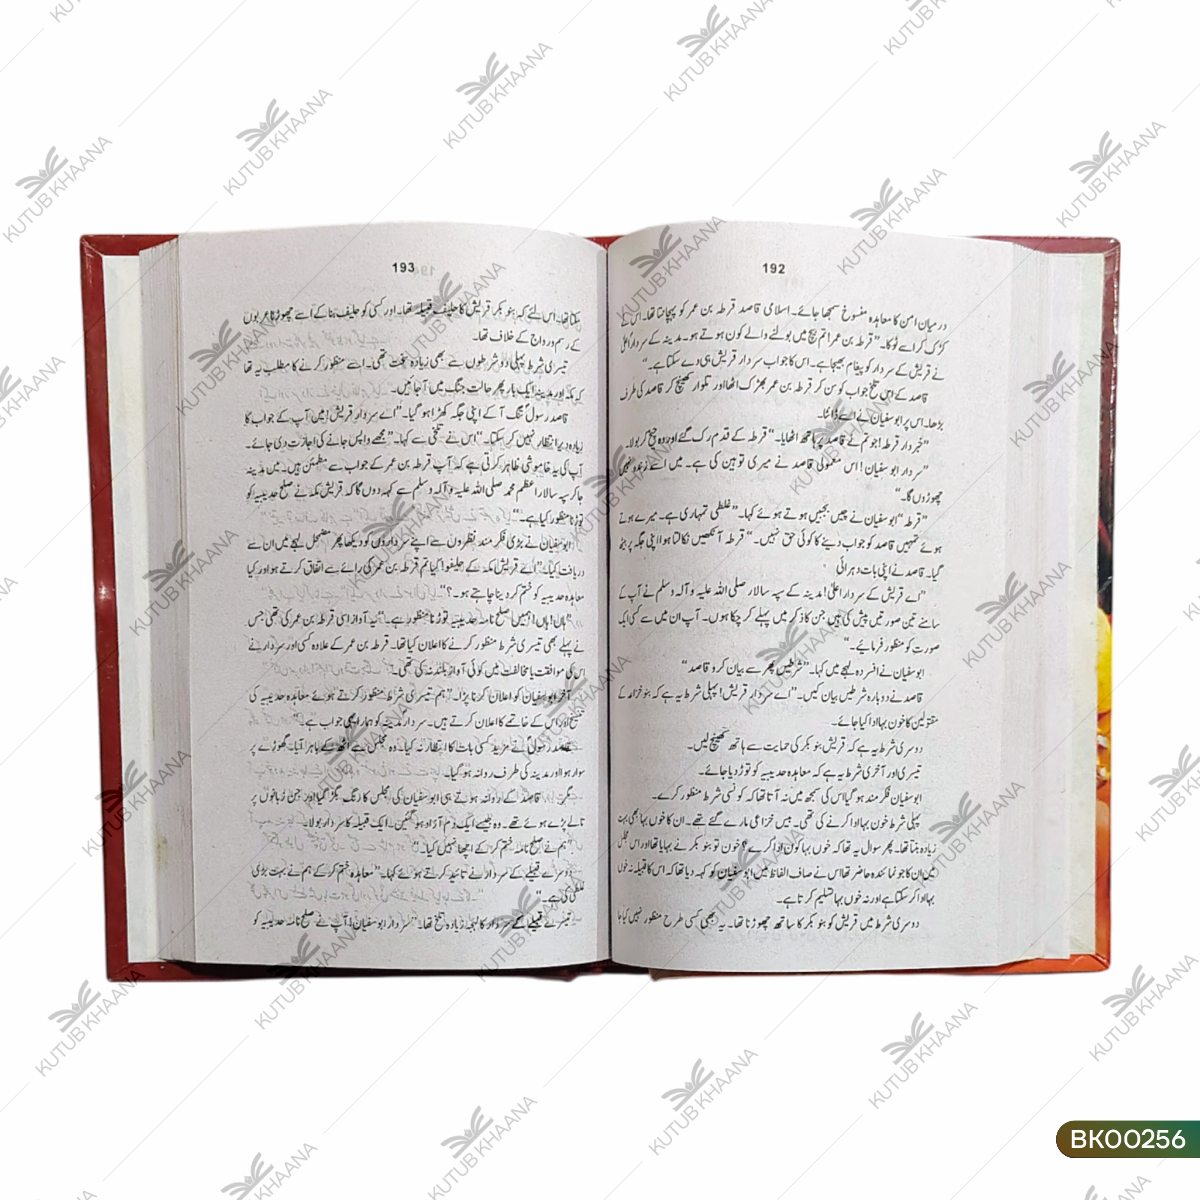 192
درمیان امن کا معاہدہ منسوخ سمجھا جائے۔ اسلامی قاصد قرطہ بن عمر کو پہچانتا تھا۔ اس نے
کڑک کر اسے ٹوکا۔ "قرطہ بن عمر! تم بیچ میں بولنے والے کون ہوتے ہو۔ مدینہ کے سردار اعلیٰ
نے قریش کے سردار کو پیغام بھیجا ہے۔ اس کا جواب سردار قریش ہی دے سکتا ہے۔"
قاصد کے اس تلخ جواب کو سن کر قرطہ بن عمر بھڑک اٹھا اور تلوار کھینچ کر قاصد کی طرف
بڑھا۔ اس پر ابوسفیان نے اسے ڈانٹا۔
"خبردار قرطہ! جو تم نے قاصد پر ہاتھ اٹھایا۔" قرطہ کے قدم رک گئے اور وہ چیخ کر بولا۔
"سردار ابوسفیان! اس معمولی قاصد نے میری توہین کی ہے۔ میں اسے زندہ نہیں
چھوڑوں گا۔"
"قرطہ" ابوسفیان نے چیں بجبیں ہوتے ہوئے کہا۔ "غلطی تمہاری ہے۔ میرے ہوتے
ہوئے تمہیں قاصد کو جواب دینے کا کوئی حق نہیں۔" قرطہ آنکھیں نکالتا ہوا اپنی جگہ پر بیٹھ
گیا۔ قاصد نے اپنی بات دہرائی
"اے قریش کے سردار اعلیٰ! مدینہ کے سپہ سالار صلی اللہ علیہ و آلہ وسلم نے آپ کے
سامنے تین صورتیں پیش کی ہیں جن کا ذکر میں پہلے کر چکا ہوں۔ آپ ان میں سے کسی ایک
صورت کو منظور فرمائیے۔"
ابوسفیان نے افسردہ لہجے میں کہا۔ "شرطیں پھر سے بیان کرو قاصد"
قاصد نے دوبارہ شرطیں بیان کیں۔ "اے سردار قریش! پہلی شرط یہ ہے کہ بنو خزاعہ کے
مقتولین کا خون بہا ادا کیا جائے۔
دوسری شرط یہ ہے کہ قریش بنو بکر کی حمایت سے ہاتھ کھینچ لیں۔
تیسری اور آخری شرط یہ ہے کہ معاہدہ حدیبیہ کو توڑ دیا جائے۔
ابوسفیان فکر مند ہو گیا اس کی سمجھ میں نہ آتا تھا کہ کونسی شرط منظور کرے۔
پہلی شرط خون بہا ادا کرنے کی تھی۔ بیس خزاعی مارے گئے تھے۔ ان کا خوں بہا بھی بہت
زیادہ بنتا تھا۔ پھر سوال یہ تھا کہ خوں بہا کون ادا کرے؟ خون تو بنو بکر نے بہایا تھا اور اس مجلس
میں ان کا جو نمائندہ حاضر تھا اس نے صاف الفاظ میں ابوسفیان کو کہہ دیا تھا کہ اس کا قبیلہ نہ خوں
بہا ادا کر سکتا ہے اور نہ خوں بہا تسلیم کرتا ہے۔
دوسری شرط میں قریش کو بنو بکر کا ساتھ چھوڑنا تھا۔ یہ بھی کسی طرح منظور نہیں کیا جا
193
سکتا تھا۔ اس لئے کہ بنو بکر قریش کا حلیف قبیلہ تھا۔ اور کسی کو حلیف بنا کے اسے چھوڑنا عربوں
کے رسم و رواج کے خلاف تھا۔
تیسری شرط پہلی دو شرطوں سے بھی زیادہ سخت تھی۔ اسے منظور کرنے کا مطلب یہ تھا
کہ مکہ اور مدینہ ایک بار پھر حالت جنگ میں آ جائیں۔
قاصد رسولؐ تنگ آ کے اپنی جگہ کھڑا ہو گیا۔ "اے سردار قریش! میں آپ کے جواب کا
زیادہ دیر انتظار نہیں کر سکتا۔" اس نے تلخی سے کہا۔ "مجھے واپس جانے کی اجازت دی جائے۔
آپ کی یہ خاموشی ظاہر کرتی ہے کہ آپ قرطہ بن عمر کے جواب سے مطمئن ہیں۔ میں مدینہ
جا کر سپہ سالار اعظم محمد صلی اللہ علیہ و آلہ وسلم سے کہہ دوں گا کہ قریش مکہ نے صلح حدیبیہ کو
توڑنا منظور کیا ہے۔"
ابوسفیان نے بڑی فکر مند نظروں سے اپنے سرداروں کو دیکھا پھر مضمحل لہجے میں ان سے
دریافت کیا۔ "اے قریش مکہ کے حلیفو! کیا تم قرطہ بن عمر کی رائے سے اتفاق کرتے ہو اور کیا
معاہدہ حدیبیہ کو ختم کر دینا چاہتے ہو۔؟"
"ہاں! ہاں! ہمیں صلح نامہ حدیبیہ توڑنا منظور ہے۔" یہ آواز اسی قرطہ بن عمر کی تھی جس
نے پہلے بھی تیسری شرط منظور کرنے کا اعلان کیا تھا۔ قرطہ بن عمر کے علاوہ کسی اور سردار نے
اس کی موافقت یا مخالفت میں کوئی آواز بلند نہ کی تھی۔
آخر ابوسفیان کو اعلان کرنا پڑا۔ "ہم تیسری شرط منظور کرتے ہوئے معاہدہ حدیبیہ کی
تنسیخ اور اس کے خاتمے کا اعلان کرتے ہیں۔ سردار مدینہ کو ہمارا یہی جواب ہے۔"
قاصد رسولؐ نے مزید کسی بات کا انتظار نہ کیا۔ وہ مجلس سے اٹھ کے باہر آیا۔ گھوڑے پر
سوار ہوا اور مدینہ کی طرف روانہ ہو گیا۔
قاصد کے روانہ ہوتے ہی ابوسفیان کی مجلس کا رنگ بگڑ گیا اور جن زبانوں پر
تالے پڑے ہوئے تھے۔ وہ جیسے ایک دم آزاد ہو گئیں۔ ایک قبیلہ کا سردار بولا۔
"ہم نے صلح نامہ ختم کر کے اچھا نہیں کیا۔"
دوسرے قبیلے کے سردار نے تائید کرتے ہوئے کہا۔ "معاہدہ ختم کر کے ہم نے بہت بڑی
غلطی کی ہے۔"
تیسرے قبیلے کے سردار کا لہجہ زیادہ تلخ تھا۔ "سردار ابوسفیان! آپ نے صلح نامہ حدیبیہ کو
KUTUB KHAANA
BK00256